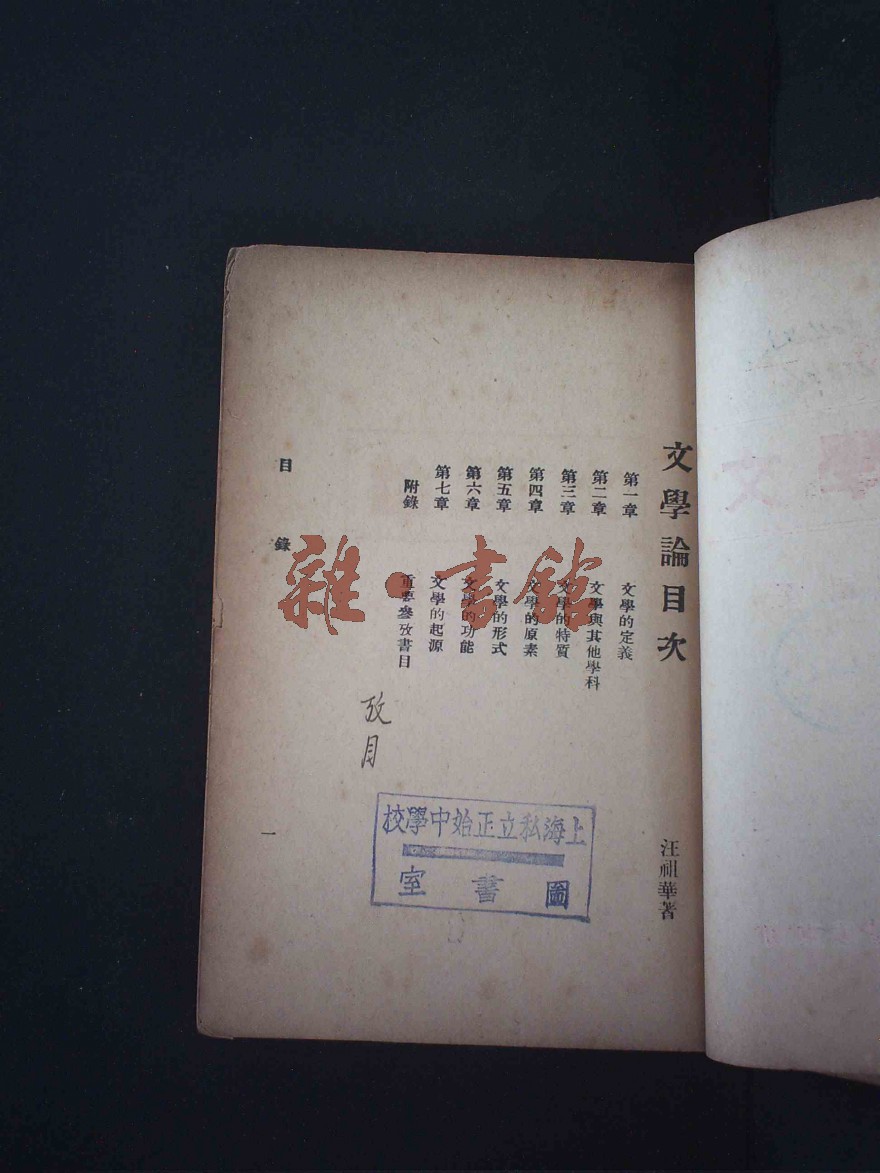 文學論目次
汪祖華著
第一章 文學的定義
第二章 文學與其他學科
第三章 文學的特質
第四章 文學的原素
第五章 文學的形式
第六章 文學的功能
第七章 文學的起源
附錄 重要參攷書目
目錄
一
雜·書館
上海私立正始中學校
圖書室